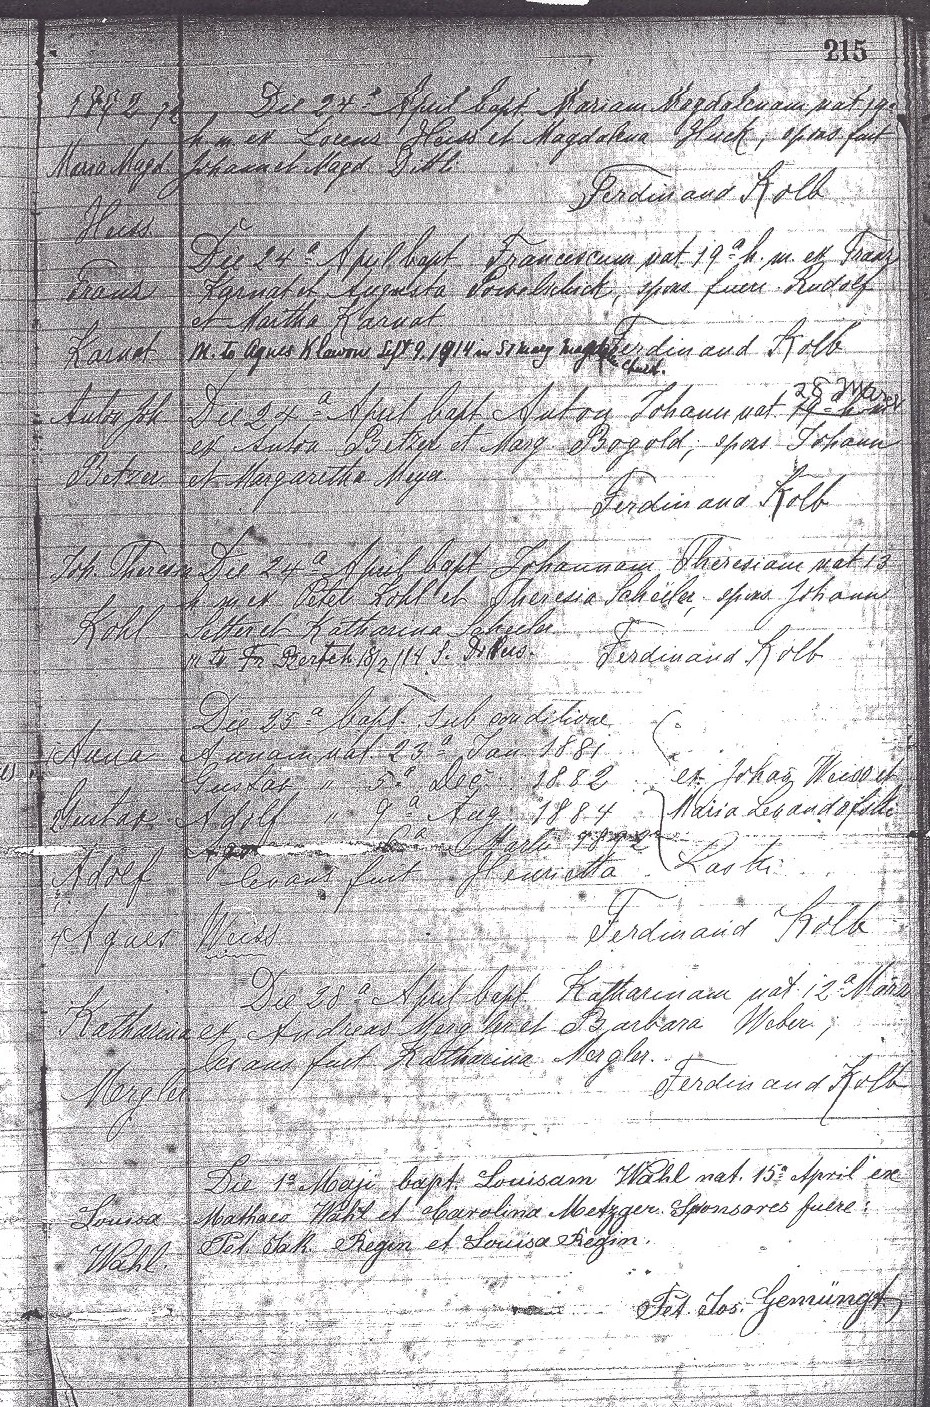 215
1892
Die 24ª April bapt. Mariam Magdalenam nat 19ª
h. m. ex Lorenz Heiss et Magdalena Gluck, spons fuit
Maria Magd
Johann et Magd. Dittl
Ferdinand Kolb
Heiss
Die 24ª April bapt Franciscum nat 19ª h. m. ex Franz
Franz
Karnat et Augusta spons fuere Rudolf
et Martha Karnat
Karnat
m. to Agnes Klawon Sept 9. 1914 in St mary magd church.
Ferdinand Kolb
28 März
Anton Joh
Die 24ª April bapt Anton Johann nat 19ª h m
ex Anton Betzer et Marg Bogold, spons Johann
Betzer
et Margaretha Meyer
Ferdinand Kolb
Joh. Theresia
Die 24ª April bapt Johannam Theresiam nat 13
h m ex Peter Kohl et Theresia Scheiler, spons Johann
Kohl
et Katharina Scheiler
m to Fr 18/2/14 S.
Ferdinand Kolb
Die 25ª bapt. sub conditione
Anna
Annam nat. 23ª Jan 1881
Gustav " 5ª Dec 1882
ex Johan Weiss et
Gustav
Adolf " 9ª Aug 1884
Maria
6ª Martii 1892
Adolf
levans fuit Henrietta Laski
4 Agnes
Weiss
Ferdinand Kolb
Die 28ª April bapt. Katharinam nat 12ª März
Katharina
ex Andreas Mergler et Barbara Weber,
levans fuit Katharina Mergler.
Mergler
Ferdinand Kolb
Die 1ª Maji bapt. Louisam Wahl nat. 15ª April ex
Louisa
Mathaeo Wahl et Carolina Metzger. Sponsores fuere:
Wahl.
Pet. Jak. Regin et Louisa Regin.
Pet. Jos. Gemüngt